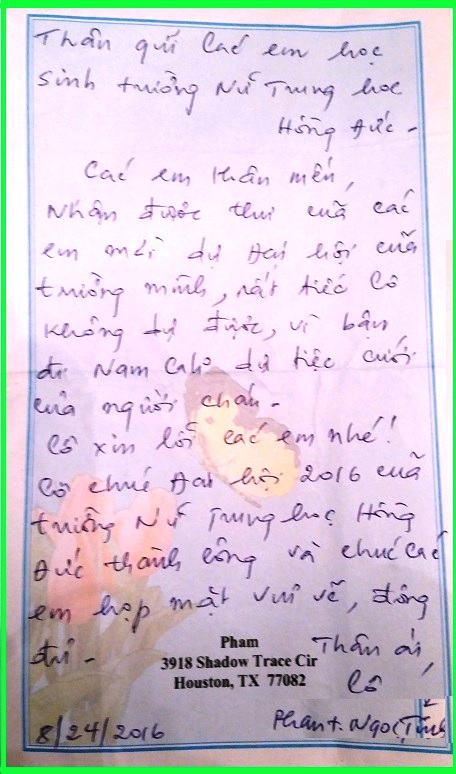 Thân gửi Các em học
sinh trường Nữ Trung học
Hồng Đức -
Các em thân mến,
Nhận được thư của các
em mời dự Đại hội của
trường mình, rất tiếc Cô
không dự được, vì bận
đi Nam Cali dự tiệc cưới
của người cháu -
Cô xin lỗi các em nhé!
Cô chúc Đại hội 2016 của
trường Nữ Trung học Hồng
Đức thành công và chúc các
em họp mặt vui vẽ, đông
đủ -
Thân ái,
Cô
Pham
3918 Shadow Trace Cir
Houston, TX 77082
8/24/2016
Phan t. Ngọc Tĩnh